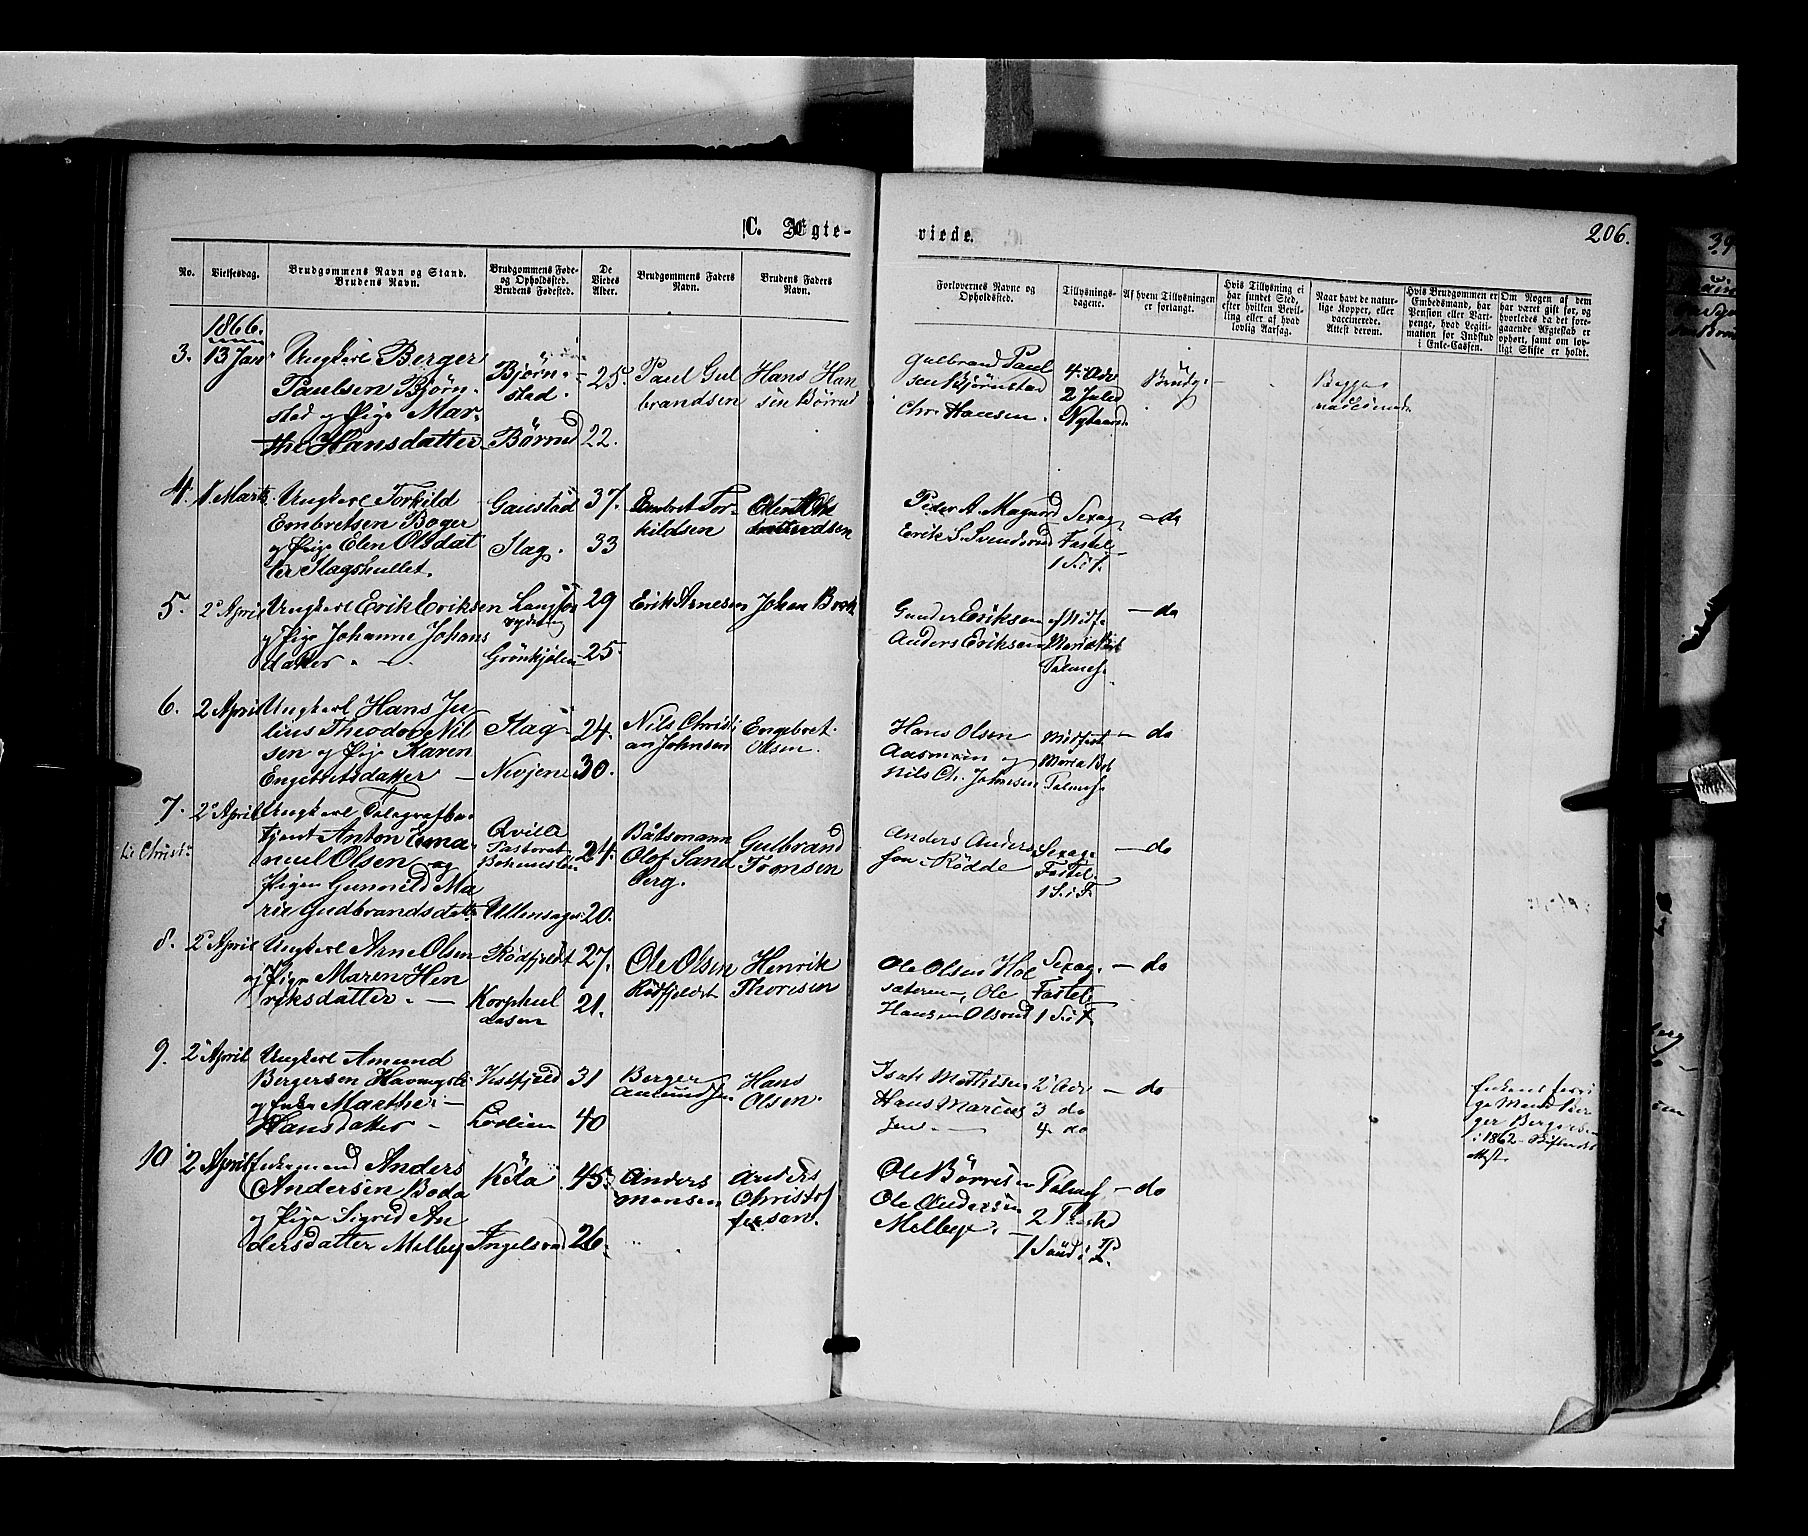 C. Ægte-
viede.
206.
No.
Vielsesdag.
Brudgommens Navn og Stand.
Brudens Navn.
Brudgommens Føde-
og Opholdssted.
Brudens Fødested.
De
Viedes
Alder.
Brudgommens Faders
Navn.
Brudens Faders
Navn.
Forlovernes Navne og
Opholdssted.
Tillysnings-
dagene.
Af hvem Tillysningen
er forlangt.
Hvis Tillysning ei
har fundet Sted,
efter hvilken Bevil-
ling eller af hvad
lovlig Aarsag.
Naar havt de natur-
lige Kopper, eller
vaccinerede.
Attest derom.
Hvis Brudgommen er
Embedsmand, har
Pension eller Vart-
penge, hvad Legiti-
mation for Indskud
i Enke-Cassen.
Om Nogen af dem
har været gift før, og
hvorledes da det fore-
gaaende Ægteskab er
ophørt, samt om lov-
ligt Skifte er holdt.
1866.
3. 13 Jan
Ungkarl Berger
Paulsen Bjørn-
sted og Pige Mar-
the Hansdatter
Bjørn-
sted.
Børrud
25.
22.
Paul Gul
brandsen
Hans Han
sen Børrud
Gulbrand Paul
sen Bjørnstad
Chr. Hansen.
4. Adv
2 Juled
Nytaarsd
Brudg.
Begge
4. 1. Marts
Ungkarl Torkild
Embretsen Boger
og Pige Elen Olsdat
ter Slagshullet.
Gaustad
Slag.
37.
33
Embret Tor-
kildsen
Peder A. Magnord
Erik S. Svendsrud
Sexag.
Fastel
1 S. i F.
— do
5. 2 April
Ungkarl Erik Eriksen
og Pige Johanne Johans
datter.
Grønkjølen
29
25.
Erik Arnesen
Johan
Gunder Eriksen
Anders Eriksen
Midf.
Palmes.
— do
6. 2 April
Ungkarl Hans Ju
lius Theodor Nil
sen og Pige Karen
Engebretsdatter
Slag
24.
30.
Nils Christi
an Johnsen
Engebret
Olsen.
Hans Olsen
Aasmoen og
Nils Ch. Johnsen
Midfast
Maria Beb
Palmes.
— do
7. 2 April
Ungkarl Telegrafbe
tjent Anton Ema
nuel Olsen og
Pigen Gunnild Ma
rie Gudbrandsdatt
Qville
Pastorat
Bohuuslen
Ullensager
24.
20.
Båtsmann
Olof Sand
berg.
Gulbrand
Tomsen
Anders Anders
sen Rødde
Sexag.
Fastel.
1 S. i F.
— do
8. 2 April
Ungkarl Arne Olsen
og Pige Maren Hen
riksdatter.
Rødfjeldt
Korphul
aasen
27.
21.
Ole Olsen
Rødfjeldet
Henrik
Thoresen
Ole Olsen Hol
sæteren, Ole
Hansen Olsrud
Sexag.
Fastel
1 S. i F.
— do
9. 2 April
Ungkarl Amund
Bergersen
og Enke Marthe
Hansdatter
Lovlien
31
40
Berger
Amundsen
Hans
Olsen.
Isak Mathisen
Hans Marcus
sen
2 Adv
3 do
4. do
— do
Enkens forri
ge Mand Ber
ger Bergersen
i 1862.
10 2 April
Enkemand Anders
Andersen Boda
og Pige Sigrid An
dersdatter Melby
Kila
Ingelsrud
45.
26.
Anders
Monsen
Anders
Christof
fersen.
Ole Børresen
Ole Andersen
Melbye.
Palmes.
— do